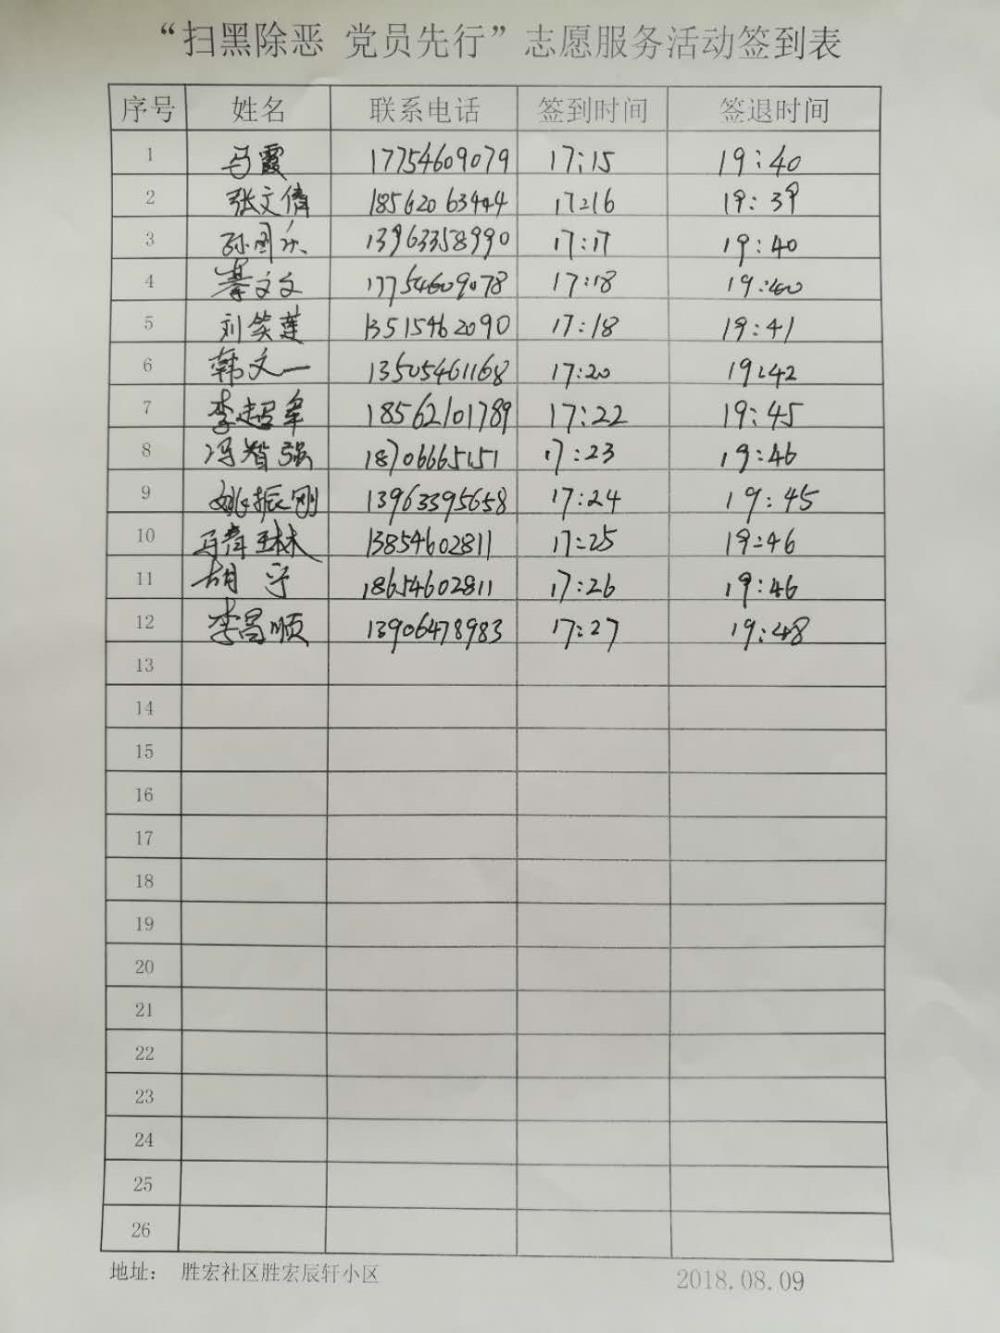 “扫黑除恶 党员先行”志愿服务活动签到表
序号 姓名 联系电话 签到时间 签退时间
1 马霞 17754609079 17:15 19:40
2 张文倩 18562063444 17:16 19:39
3 孙国庆 13963358990 17:17 19:40
4 綦文文 17754609078 17:18 19:40
5 刘笑莲 13515462090 17:18 19:41
6 韩文一 13505461168 17:20 19:42
7 李超军 18562101789 17:22 19:45
8 冯智强 18706665151 17:23 19:46
9 姚振刚 13963395658 17:24 19:45
10 13854602811 17:25 19:46
11 胡宁 18654602811 17:26 19:46
12 李昌顺 13906478983 17:27 19:48
13
14
15
16
17
18
19
20
21
22
23
24
25
26
地址： 胜宏社区胜宏辰轩小区 2018.08.09